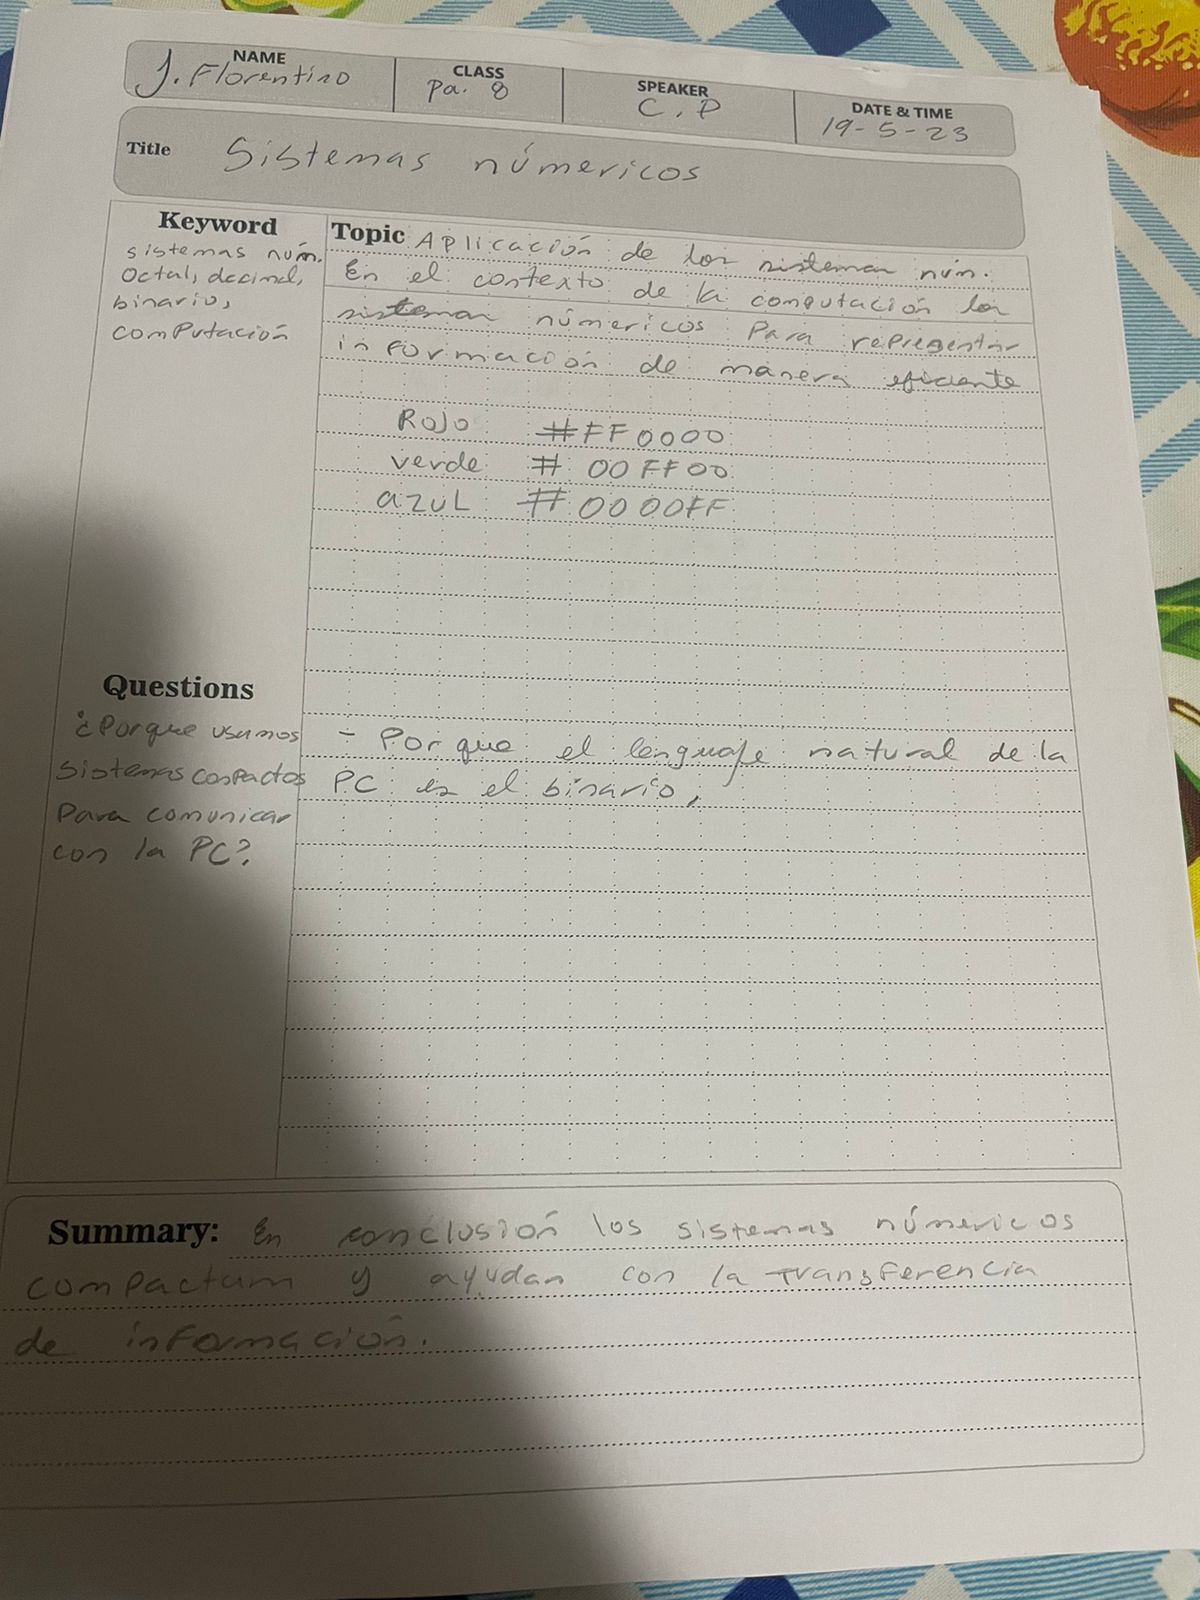 NAME
J. Florentino
CLASS
Pa. 8
SPEAKER
C.P
DATE & TIME
19-5-23
Title
Sistemas númericos
Keyword
sistemas núm.
Octal, decimal,
binario,
computación
Topic Aplicación de los sistemas núm.
En el contexto de la computación los
sistemas númericos Para representar
información de manera eficiente
Rojo #FF0000
verde # 00FF00
azul # 0000FF
Questions
¿Porque usamos
sistemas compactos
Para comunicar
con la PC?
- Por que el lenguaje natural de la
PC es el binario,
Summary: En conclusión los sistemas númericos
compactum y ayudan con la transferencia
de información.